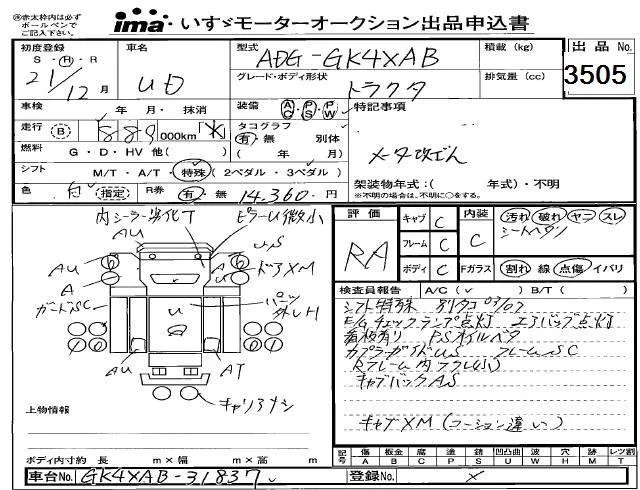 ㊟赤太枠内は必ず
ボールペンで
ご記入下さい。
ima いすゞモーターオークション出品申込書
初度登録
S・H・R
21/12月
車名
UD
型式
ADG-GK4XAB
積載(kg)
出品No.
3505
グレード・ボディ形状
トラクタ
排気量(cc)
車検
年 月・抹消
装備
AC・PS・PW
特記事項
走行 B 889 000km
タコグラフ
有・無 別体
( 年 月)
メータ改ざん
燃料
G・D・HV 他( )
シフト
M/T・A/T・特殊(2ペダル・3ペダル)
架装物年式:( 年式)・不明
※不明の場合は、不明に○をする。
色
(指定)
R券
有・無 14,360円
内シーラー劣化T
ピラーU微小
AU
US
AU
ドアXM
A
ガードSC
U
パニッツ外レH
AU
AT
キャリアナシ
上物情報
評価
RA
キャブ C
フレーム C
ボディ C
内装
C
汚れ 破れ ヤニ スレ
シートヘタリ
Fガラス
割れ 線 点傷 イバリ
検査員報告 A/C( ) B/T( )
シフト特殊 別タコ 03/07
E/Gチェックランプ点灯 エアバッグ点灯
看板有り P.Sオイルベタ
カプラーガイドUS フレームSC
Rフレーム内フクレ(小)
キャブバックAS
キャブXM(コーション違い)
ボディ内寸約 長 m×幅 m×高 m
記号
傷 A
板金 B
腐 C
塗 P
錆 S
凹凸曲 U
波 W
穴 H
跡 M
レツ割 T
車台No. GK4XAB-31837
登録No. ×